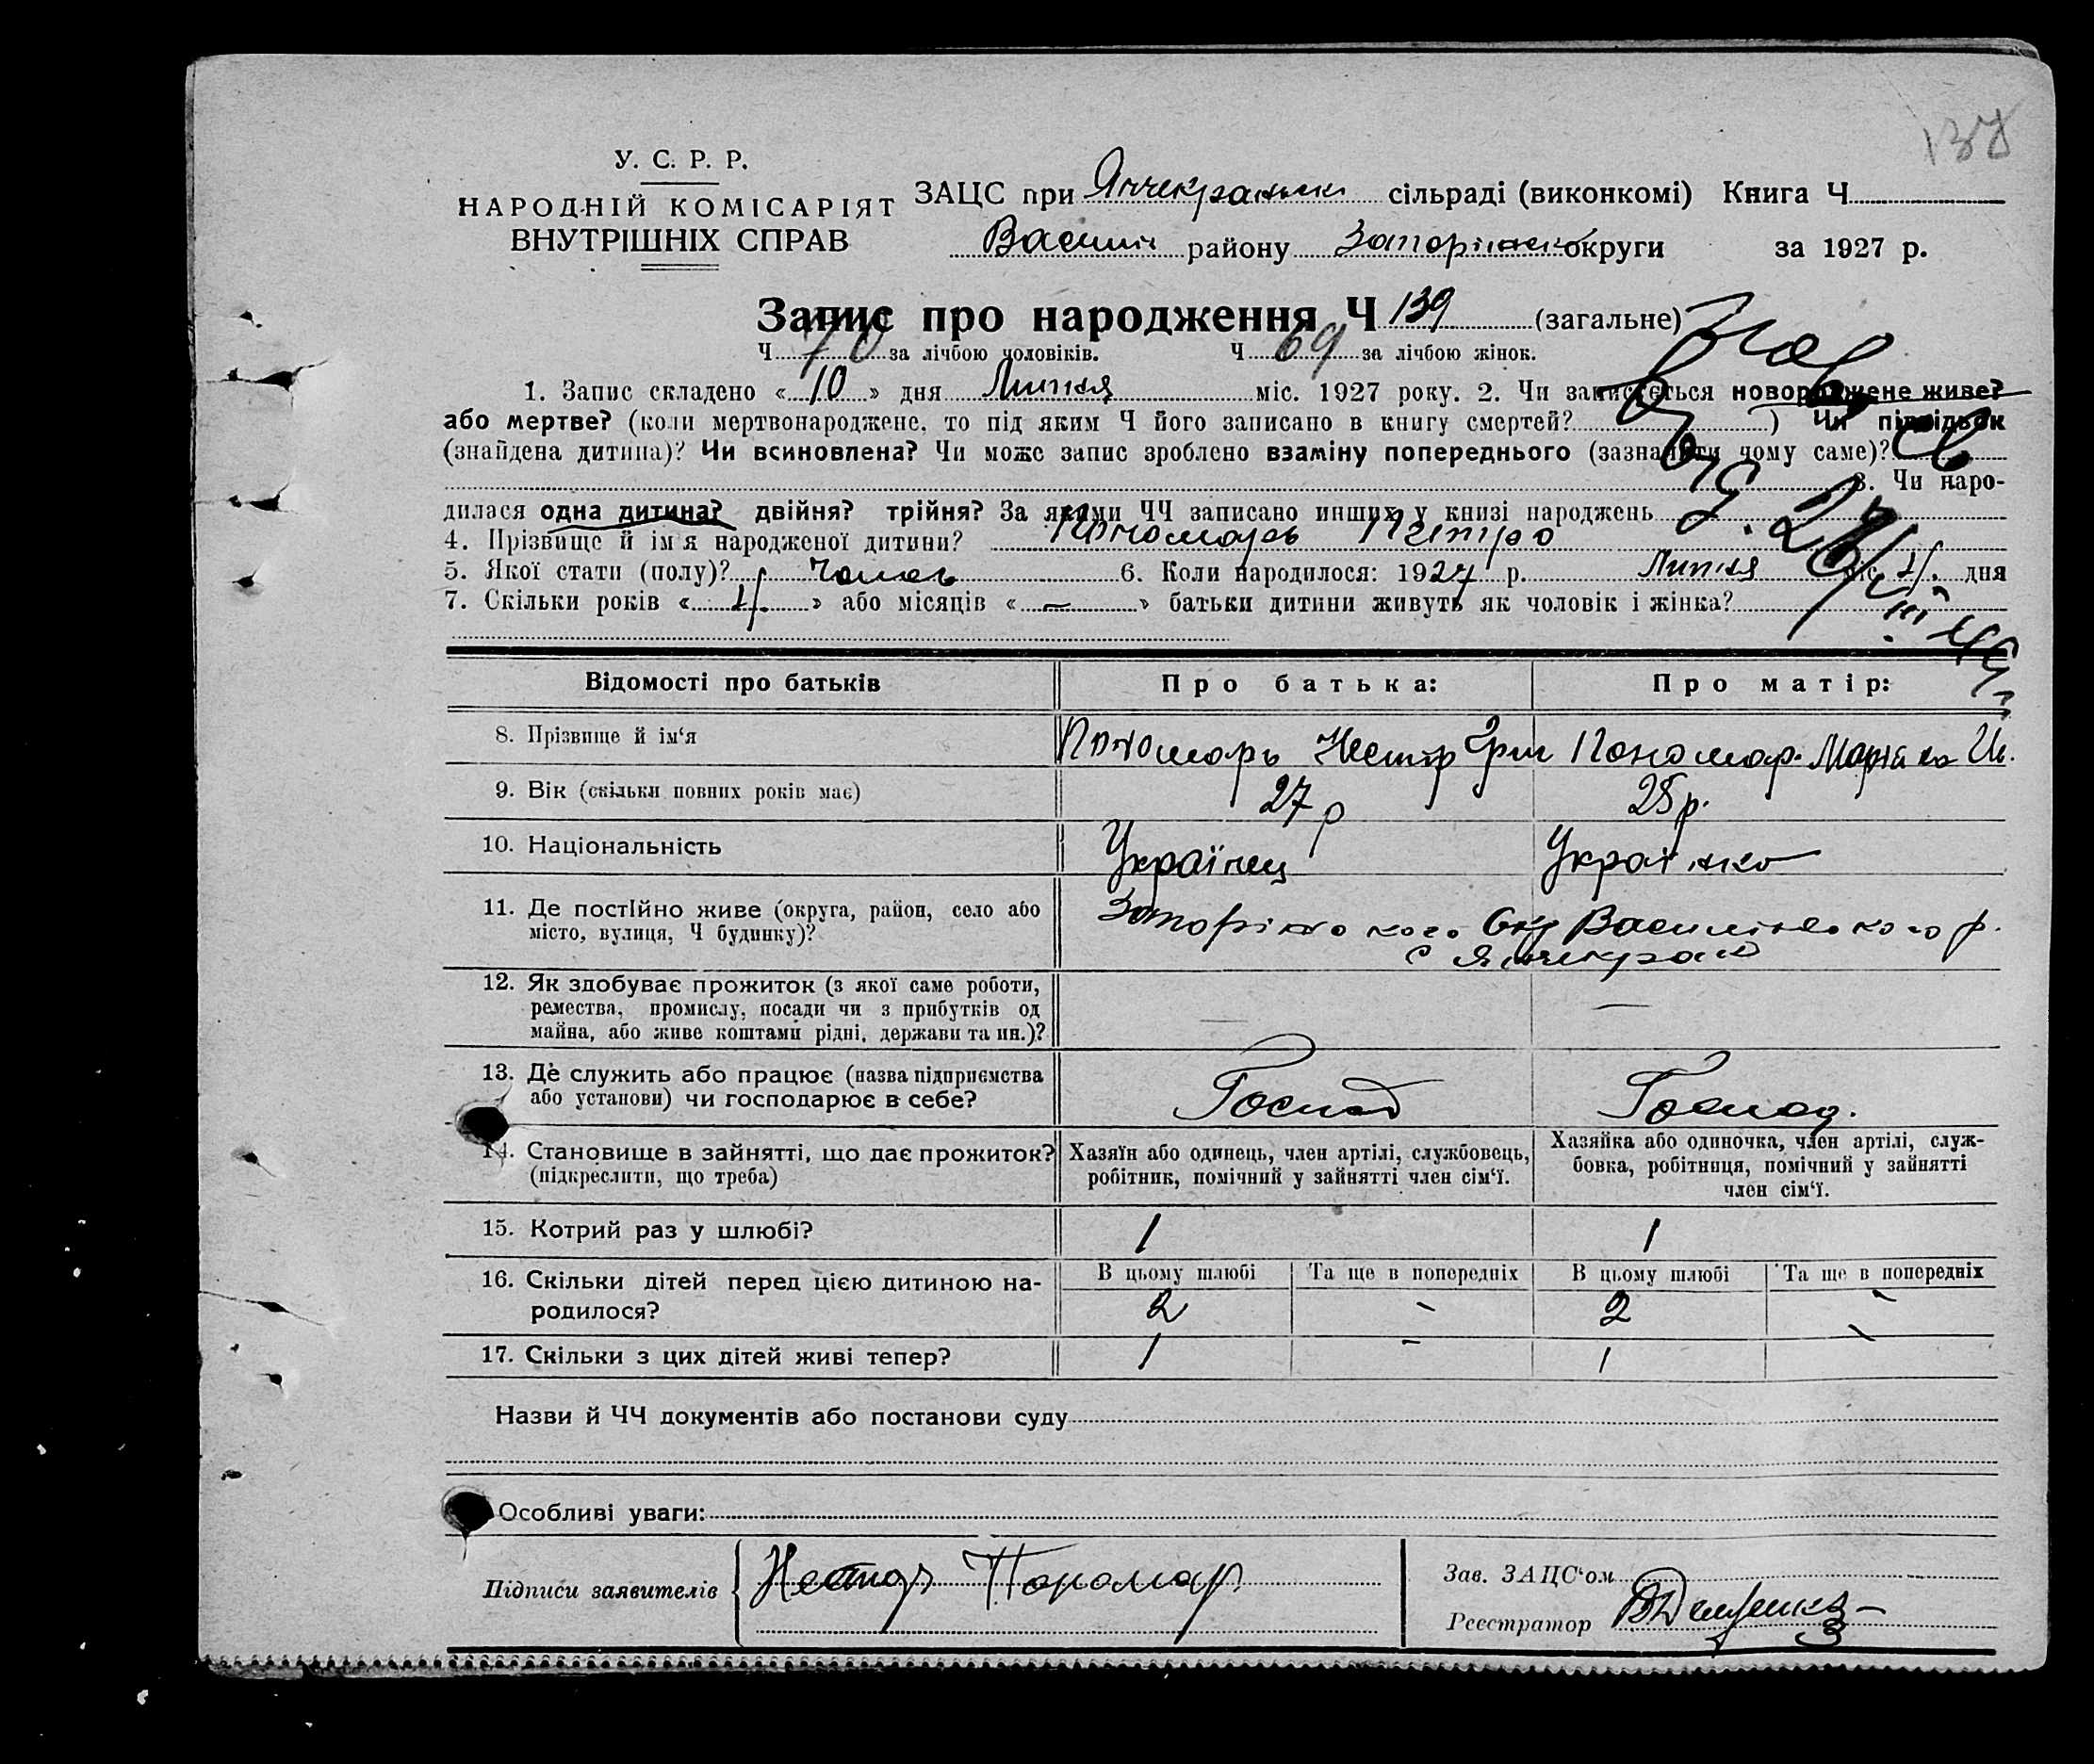 137
У. С. Р. Р.
НАРОДНІЙ КОМІСАРІЯТ
ВНУТРІШНІХ СПРАВ
ЗАЦС при Янчекрацькі сільраді (виконкомі) Книга Ч
Васили району Запоріжської округи за 1927 р.
Запис про народження Ч 139 (загальне)
Ч 70 за лічбою чоловіків. Ч 69 за лічбою жінок.
1. Запис складено «10» дня Липня міс. 1927 року. 2. Чи записується новороджене живе?
або мертве? (коли мертвонароджене, то під яким Ч його записано в книгу смертей? ) Чи підкідьок
(знайдена дитина)? Чи всиновлена? Чи може запис зроблено взаміну попереднього (зазначити чому саме)?
3. Чи наро-
дилася одна дитина? двійня? трійня? За якими ЧЧ записано инших у книзі народжень
4. Прізвище й ім'я народженої дитини? Пономарь Петро
5. Якої стати (полу)? Чолов 6. Коли народилося: 1927 р. Липня міс. 4. дня
7. Скільки років «4» або місяців «–» батьки дитини живуть як чоловік і жінка?
Відомості про батьків Про батька: Про матір:
8. Прізвище й ім'я Пономарь Нестір Гри Пономар. Маріяна Ив.
9. Вік (скільки повних років має) 27 р 25 р.
10. Національність Українец Українка
11. Де постійно живе (округа, район, село або Запоріжского Окр Василівського р.
місто, вулиця, Ч будинку)? с Янчекрак
12. Як здобуває прожиток (з якої саме роботи,
ремества, промислу, посади чи з прибутків од
майна, або живе коштами рідні, держави та ин.)? — —
13. Де служить або працює (назва підприємства
або установи) чи господарює в себе? Господ Господ.
14. Становище в зайнятті, що дає прожиток? Хазяїн або одинець, член артілі, службовець, Хазяйка або одиночка, член артілі, служ-
(підкреслити, що треба) робітник, помічний у зайнятті член сім'ї. бовка, робітниця, помічний у зайнятті
член сім'ї.
15. Котрий раз у шлюбі? 1 1
16. Скільки дітей перед цією дитиною на- В цьому шлюбі Та ще в попередніх В цьому шлюбі Та ще в попередніх
родилося? 2 - 2 -
17. Скільки з цих дітей живі тепер? 1 - 1 -
Назви й ЧЧ документів або постанови суду
Особливі уваги:
Підписи заявителів Нестор Пономар
Зав. ЗАЦС'ом
Реєстратор